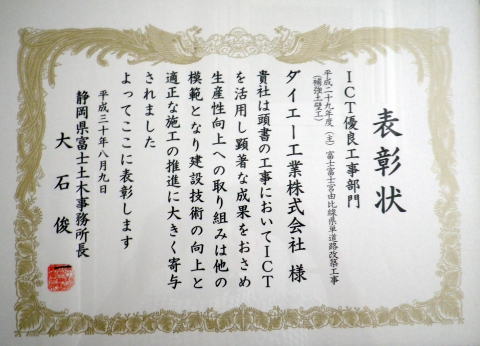 表彰状
ICT優良工事部門
平成二十九年度 (主) 富士富士宮由比線県単道路改築工事
(補強土壁工)
ダイエー工業株式会社 様
貴社は頭書の工事においてICT
を活用し顕著な成果をおさめ
生産性向上への取り組みは他の
模範となり建設技術の向上と
適正な施工の推進に大きく寄与
されました
よってここに表彰します
平成三十年八月九日
静岡県富士土木事務所長
大石俊一